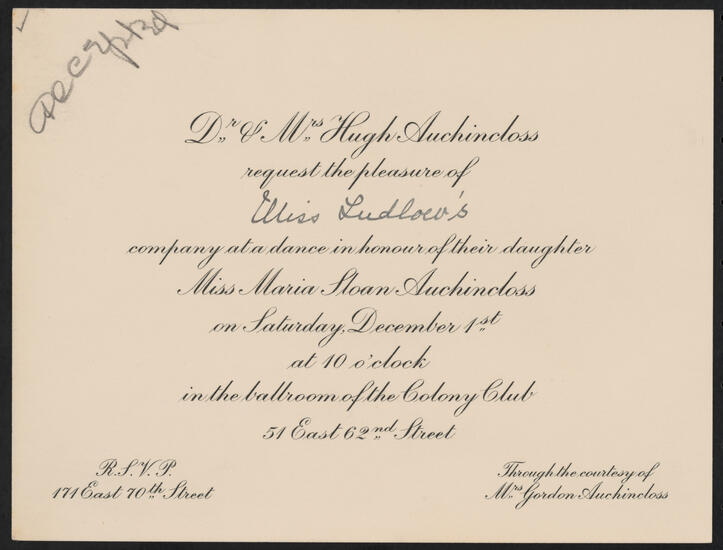 accepted
Dr. & Mrs. Hugh Auchincloss
request the pleasure of
Miss Ludlow's
company at a dance in honour of their daughter
Miss Maria Sloan Auchincloss
on Saturday, December 1st
at 10 o'clock
in the ballroom of the Colony Club
51 East 62nd Street
R.S.V.P.
171 East 70th Street
Through the courtesy of
Mrs Gordon Auchincloss